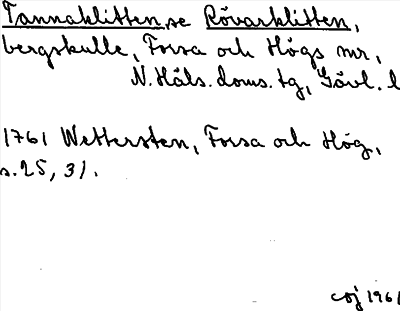 Tannaklitten, se Rövarklitten,
bergskulle, Forsa och Högs snr,
N. Häls. doms. tg, Gävl. l
1761 Wettersten, Forsa och Hög,
s. 25, 31.
1961